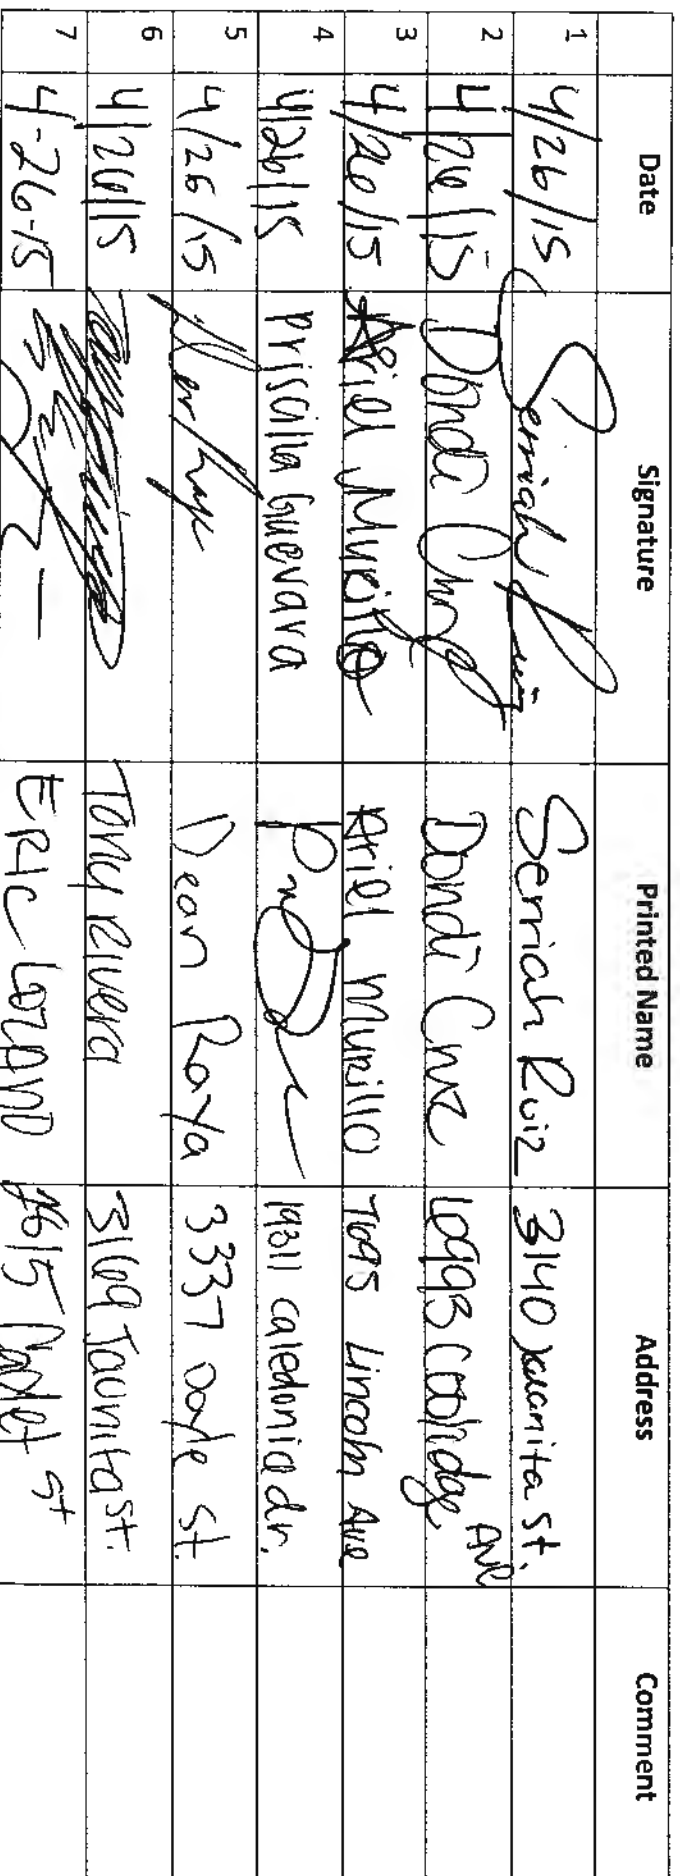 Date Signature Printed Name Address Comment
1 4/26/15 Serriah Serriah Ruiz 3140 Juanita St.
2 4/26/15 Dondi Cruz Dondi Cruz 6993 Coolidge Ave
3 4/26/15 Ariel Murillo Ariel Murillo 7695 Lincoln Ave
4 4/26/15 Priscilla Guevara 19311 Caledonia dr.
5 4/26/15 Dean Raya 3337 Doyle St.
6 4/26/15 Tony Rivera 3169 Jaunita St.
7 4-26-15 Eric Lozano St